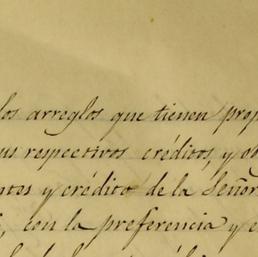 los arreglos que tienen prop
us respectivos créditos, y ob
ntos y crédito de la Señor
, con la preferencia y e